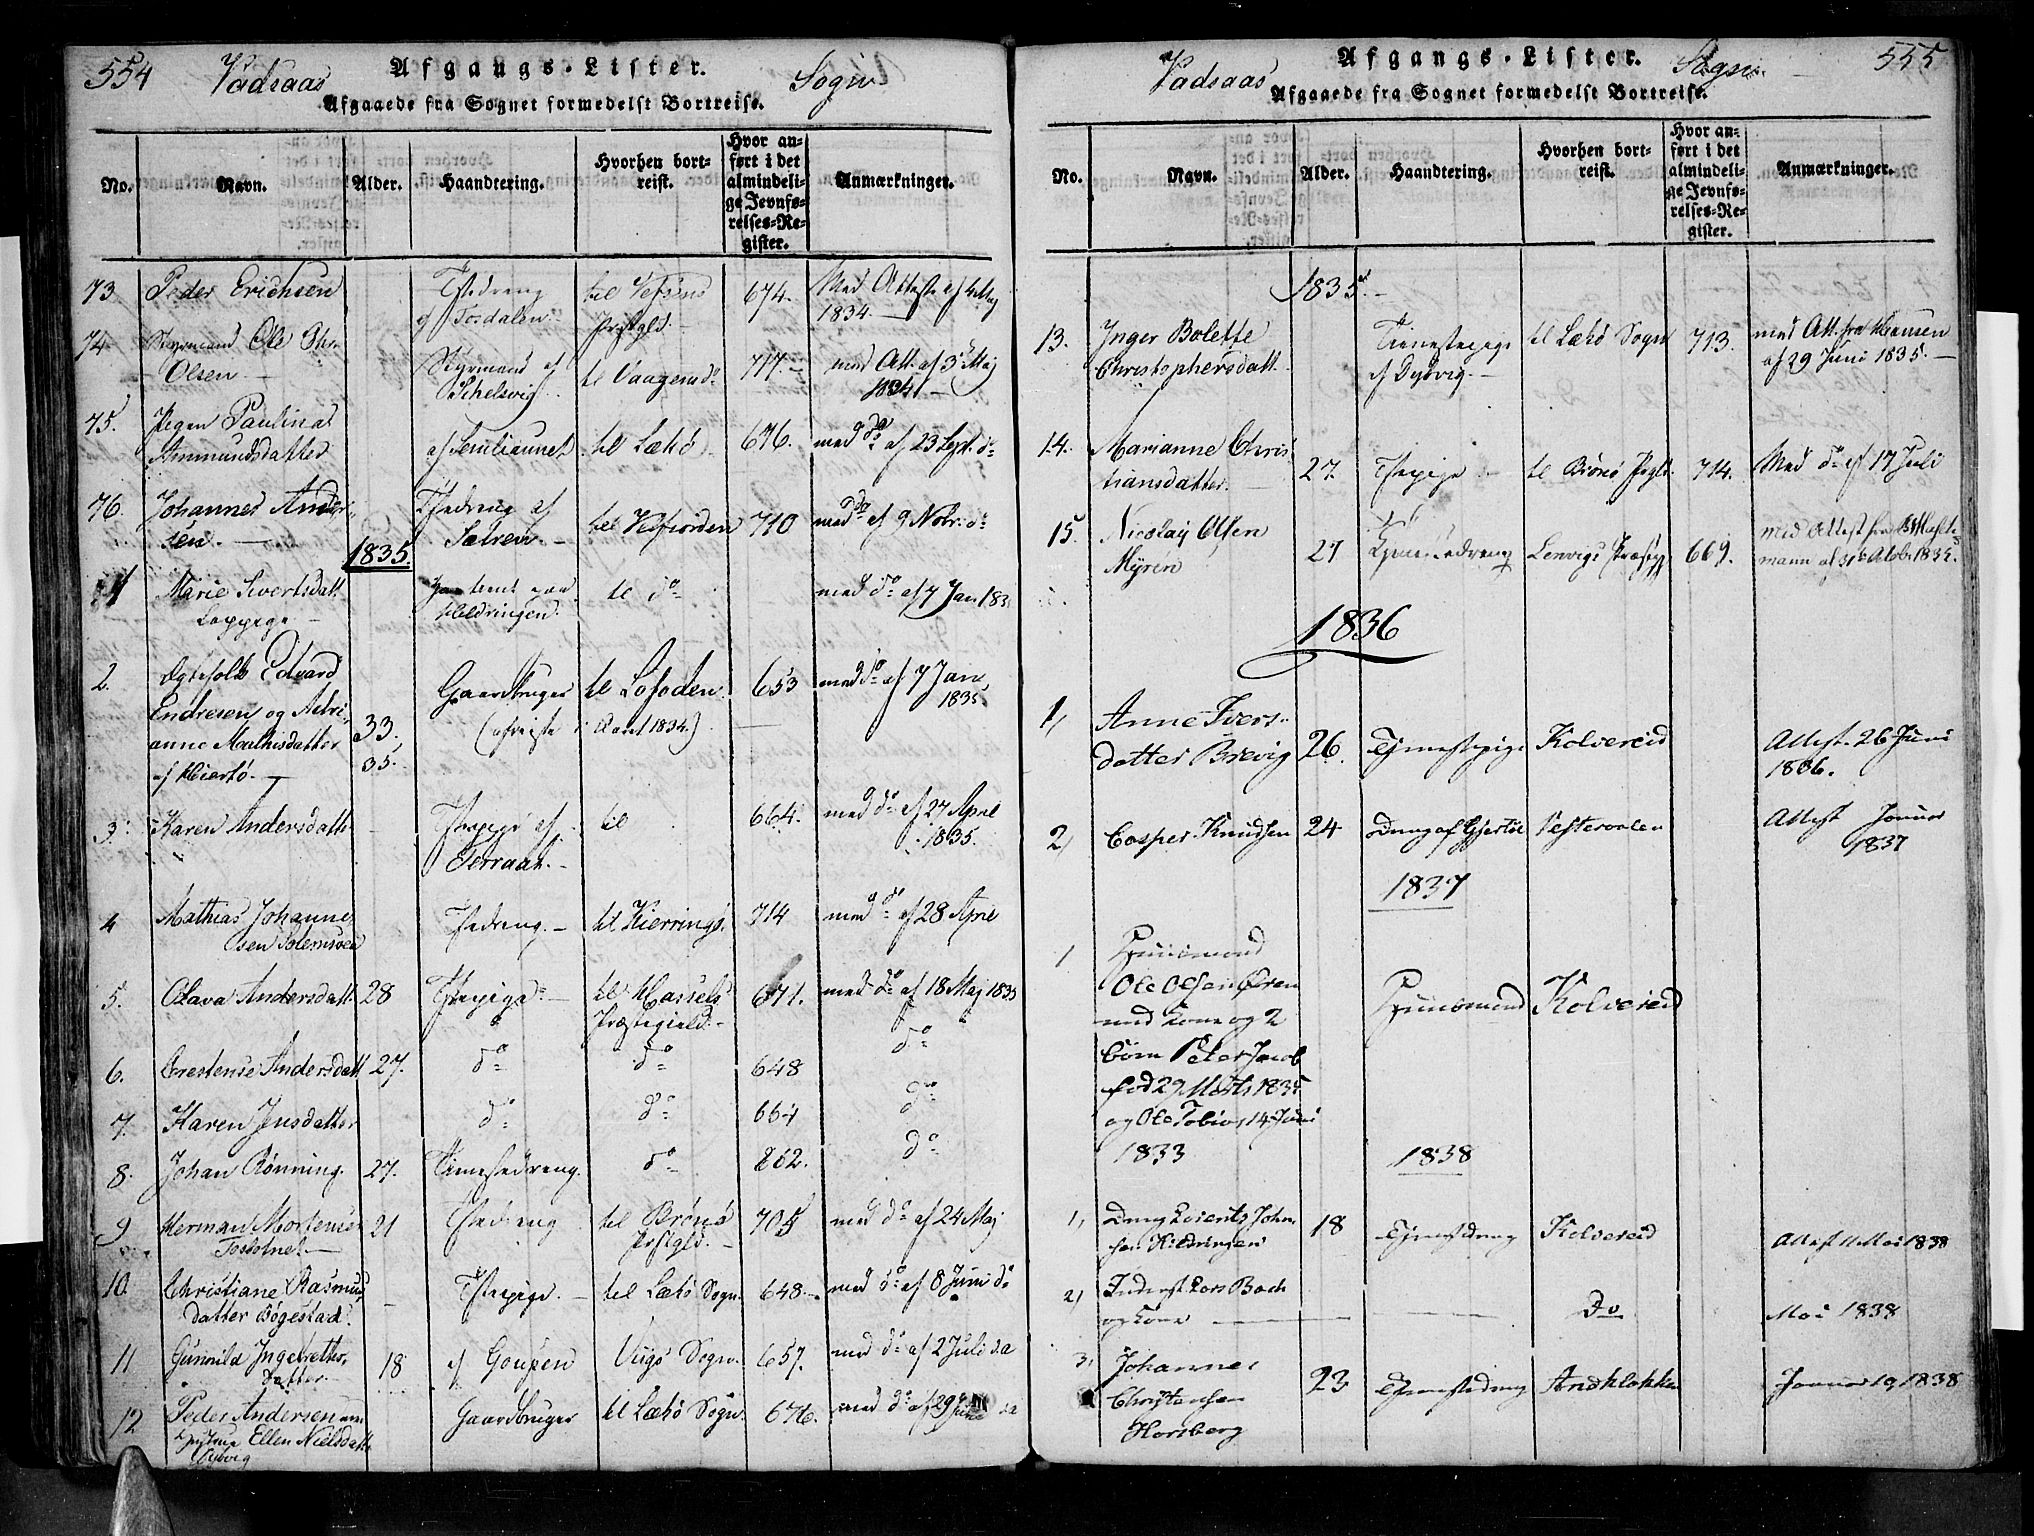 554 Vadsaas Afgangs-Lister. Sogn
Afgaaede fra Sognet formedelst Bortreise.
No. Navn. Alder. Haandtering. Hvorhen bortreist. Hvor anført i det almindelige Jevnførelses-Register. Anmærkninger.
73 Peder Erichsen Tjdreng af Tosdalen. til Vefsens Præstgld. 674. Med Attest af 4 Maj 1834.
74 Styrmand Ole Chr. Olsen. Styrmand af til Vaagens do 717. med Att. af 3 Maj 1834
75. Pigen Paulina Ammundsdatter af Semliaunet til Lekø 676. med do af 23 Sept. do
76. Johannes Andersen. Tjdreng af Sælren. til Velfiorden 710 med do af 9 Nobr. do
1835.
1 Marie Sivertsdatt. til do med do af 7 Jan 183
2. Egtefolk Edvard Endresen og Adrianne Mathisdatter af Hiertø. 33. 35. Gaardbruger til Lofoden. 653 med do af 7 Jan 1835.
(afreiste i Aaret 1834.)
3. Karen Andersdatt. Tjpige af Terraak. til 664. med do af 27 April 1835.
4 Mathias Johannesen Solemsøen Tjdreng. til Kierringø. 714 med do af 28 April
5. Olava Andersdatt. 28 Tjpige til Hassels Præstegield. 671. med do af 18 Maj 1835
6. Andersdatt. 27. do do 648 do
7. Karen Jensdatter do do 664 do
8. Johan Rønning. 27. Tienestedreng. do 862. do
9 Herman Mortensen Tosbotnet 21 Tjdreng til Brønø Præstgld. 705 med do af 24 Maj
10. Christiane Rasmusdatter Bøgestad. Tjpige. til Lekø Sogn. 648 med do af 8 Juni do
11 Gunnild Ingebrethsdatter. 18 af Goupen Viigs Sogn. 657. med do af 2 Juli da
12 Peder Andersen Ellen Nielsdatt. Gaardbruger til Lekø Sogn. 676. med do af 29 Juni da
Vadsaas Afgangs-Lister. Sogn. 555
Afgaaede fra Sognet formedelst Bortreise.
No. Navn. Alder. Haandtering. Hvorhen bortreist. Hvor anført i det almindelige Jevnførelses-Register. Anmærkninger.
1835.
13. Inger Bolette Christophersdatt. Tienestepige af Dybvig. til Lekø Sogn 713. med Att. fra af 29 Juni 1835.
14. Marianne Christiansdatter. 27. Tjpige til Brønø Pgld. 714. Med do af 17 Juli
15. Nicolay Olsen Myren 27 Tjenestedreng Lenvigs Præstg 669. med Attest fra
1836
1, Anne Iversdatter Brevig 26. Tjenestepige Kolvereid Attest. 26 Juni 1836.
2, Casper Knudsen 24 Dreng af Vesteraalen Attest Januar 1837
1837
1 Huusmand Ole Olsen Øren med Kone og 2 børn Peter Jacob fød 29 Marts 1835 og Ole Tobias 14 Juni 1833 Huusmand Kolvereid
1838
1, Dreng Lorents Johnsen Kildringen 18 Tjenestdreng Kolvereid Attest 11 Mai 1838
2, Inderst Lars Bach og Kone Do Mai 1838
3, Johannes Christensen Horsberg 23 Tjenestedreng Januar 19 1838